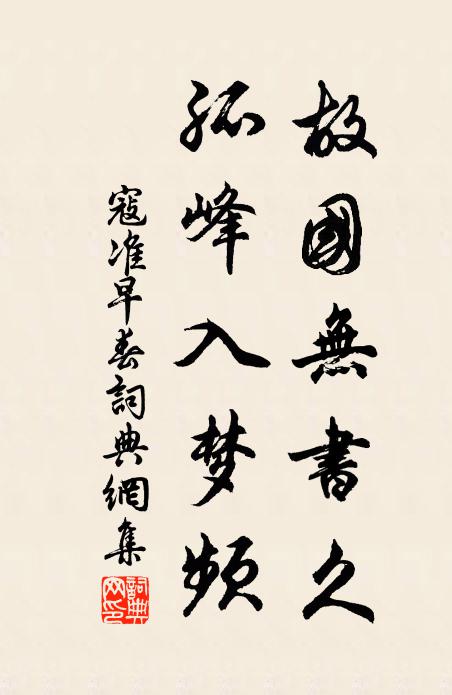 故國無書久
孤峰入梦頻
寇准早春詞典網集
詞典网印